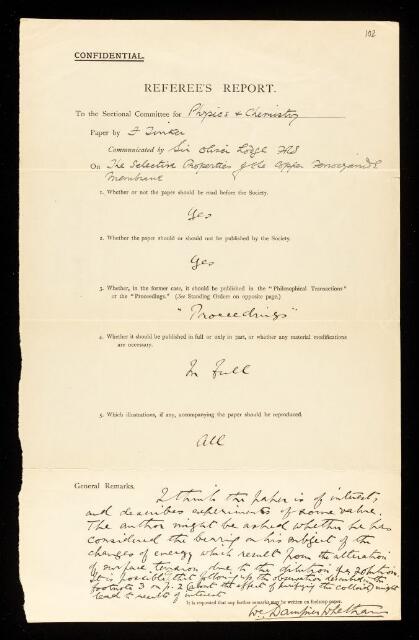 102
CONFIDENTIAL.
REFEREE'S REPORT.
To the Sectional Committee for Physics & Chemistry
Paper by F Tinker
Communicated by Sir Oliver Lodge FRS
On The Selective Properties of the Copper Ferrocyanide
Membrane
1. Whether or not the paper should be read before the Society.
Yes
2. Whether the paper should or should not be published by the Society.
Yes
3. Whether, in the former case, it should be published in the "Philosophical Transactions"
or the "Proceedings." (See Standing Orders on opposite page.)
"Proceedings"
4. Whether it should be published in full or only in part, or whether any material modifications
are necessary.
In full
5. Which illustrations, if any, accompanying the paper should be reproduced.
All
General Remarks.
I think the paper is of interest,
and describes experiments of some value.
The author might be asked whether he has
considered the bearing on his subject of the
changes of energy which result from the alteration
of surface tension due to the dilution of a solution.
It is possible that following up the observation described in the
footnote 3 on p. 2 (about the effect of purifying the colloid) might
lead to results of interest.
It is requested that any further remarks may be written on foolscap paper.
Wm. Dampier Whetham